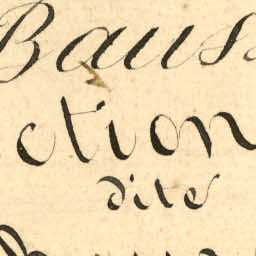 Bauss
ction
dite